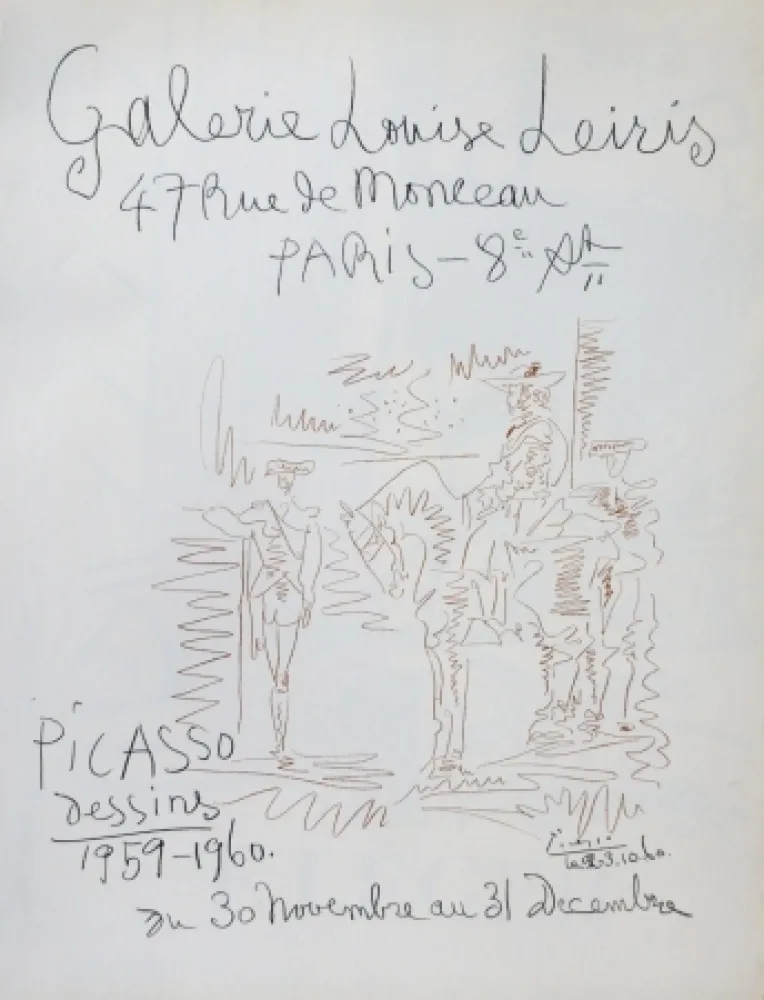 Galerie Louise Leiris
47 Rue de Monceau
PARIS - 8e Art
PiCASSO
dessins
1959-1960.
du 30 Novembre au 31 Decembre